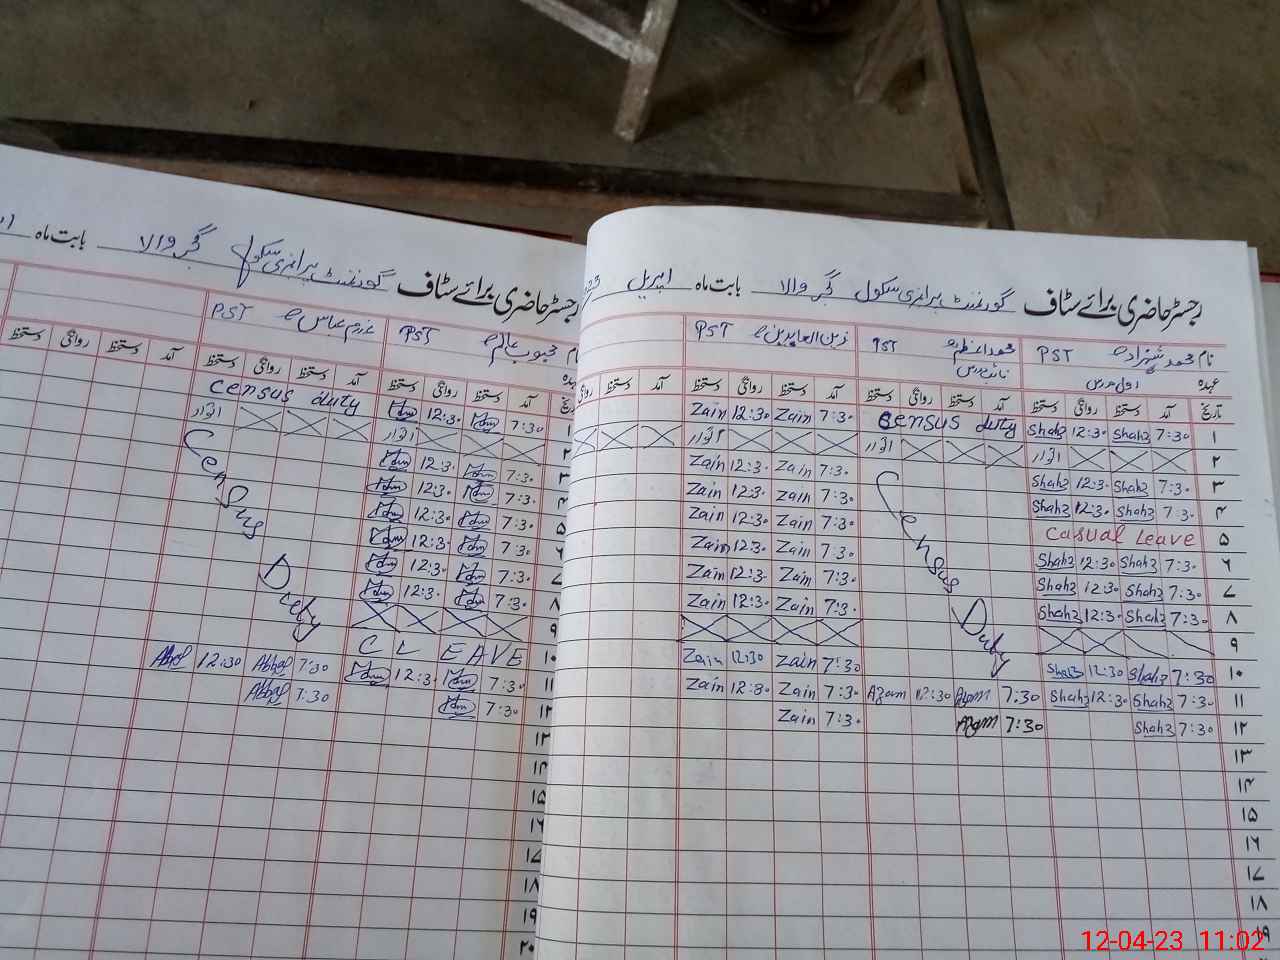 رجسٹر حاضری برائے سٹاف گورنمنٹ پرائمری سکول گجر والا بابت ماہ اپریل
نام محمد شہزاد PST محمد اعظم PST زین العابدین PST
عہدہ اول مدرس نائب مدرس
تاریخ آمد دستخط روانگی دستخط آمد دستخط روانگی دستخط آمد دستخط روانگی دستخط آمد دستخط
۱ 7:30 Shahz 12:30 Shahz Census duty 7:30 Zain 12:30 Zain
۲ اتوار اتوار اتوار
۳ 7:30 Shahz 12:30 Shahz Census Duty 7:30 Zain 12:30 Zain
۴ 7:30 Shahz 12:30 Shahz 7:30 Zain 12:30 Zain
۵ Casual Leave 7:30 Zain 12:30 Zain
۶ 7:30 Shahz 12:30 Shahz 7:30 Zain 12:30 Zain
۷ 7:30 Shahz 12:30 Shahz 7:30 Zain 12:30 Zain
۸ 7:30 Shahz 12:30 Shahz 7:30 Zain 12:30 Zain
۹
۱۰ 7:30 Shahz 12:30 Shahz 7:30 Zain 12:30 Zain
۱۱ 7:30 Shahz 12:30 Shahz 7:30 Azam 12:30 Azam 7:30 Zain 12:30 Zain
۱۲ 7:30 Shahz 7:30 Azam 7:30 Zain
۱۳
۱۴
۱۵
۱۶
۱۷
۱۸
۱۹
رجسٹر حاضری برائے سٹاف گورنمنٹ پرائمری سکول گجر والا بابت ماہ
نام محبوب عالم PST عباس PST
عہدہ
تاریخ آمد دستخط روانگی دستخط آمد دستخط روانگی دستخط آمد دستخط روانگی دستخط
۱ 7:30 12:30 Census duty
۲ اتوار اتوار
۳ 7:30 12:30 Census Duty
۴ 7:30 12:30
۵ 7:30 12:30
۶ 7:30 12:30
۷ 7:30 12:30
۸ 7:30 12:30
۹
۱۰ C LEAVE 7:30 12:30
۱۱ 7:30 12:30 7:30
۱۲ 7:30
۱۳
۱۴
۱۵
۱۶
۱۷
۱۸
۱۹
۲۰
12-04-23 11:02